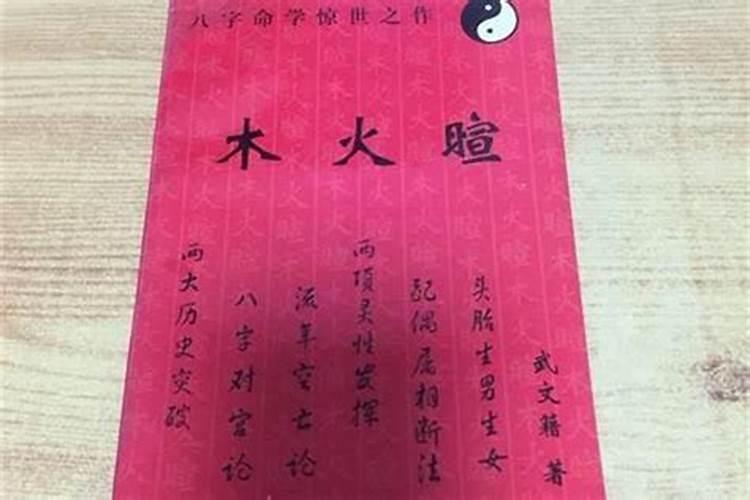 八字命学惊世之作
木火暄
两大历史突破
八字对宫论
流年空亡论
两項灵性发挥
配偶属相断法
头胎生男生女
武文籍 著